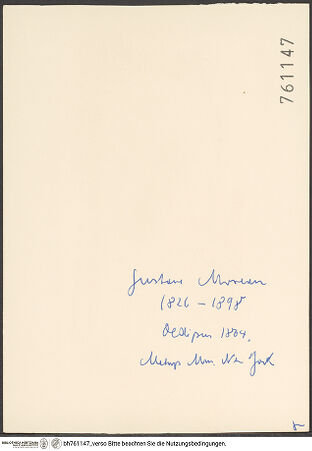 761147
Gustave Moreau
(1826 – 1898
Oedipus 1864,
Metrop Mus. New York
bh761147_verso Bitte beachten Sie die Nutzungsbedingungen.